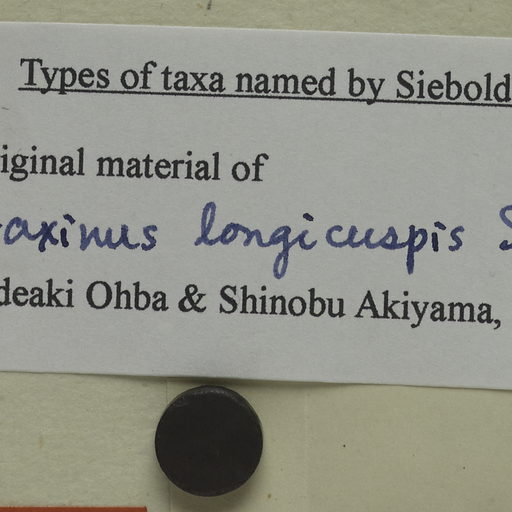 Types of taxa named by Siebold
iginal material of
axinus longicuspis S
deaki Ohba & Shinobu Akiyama,